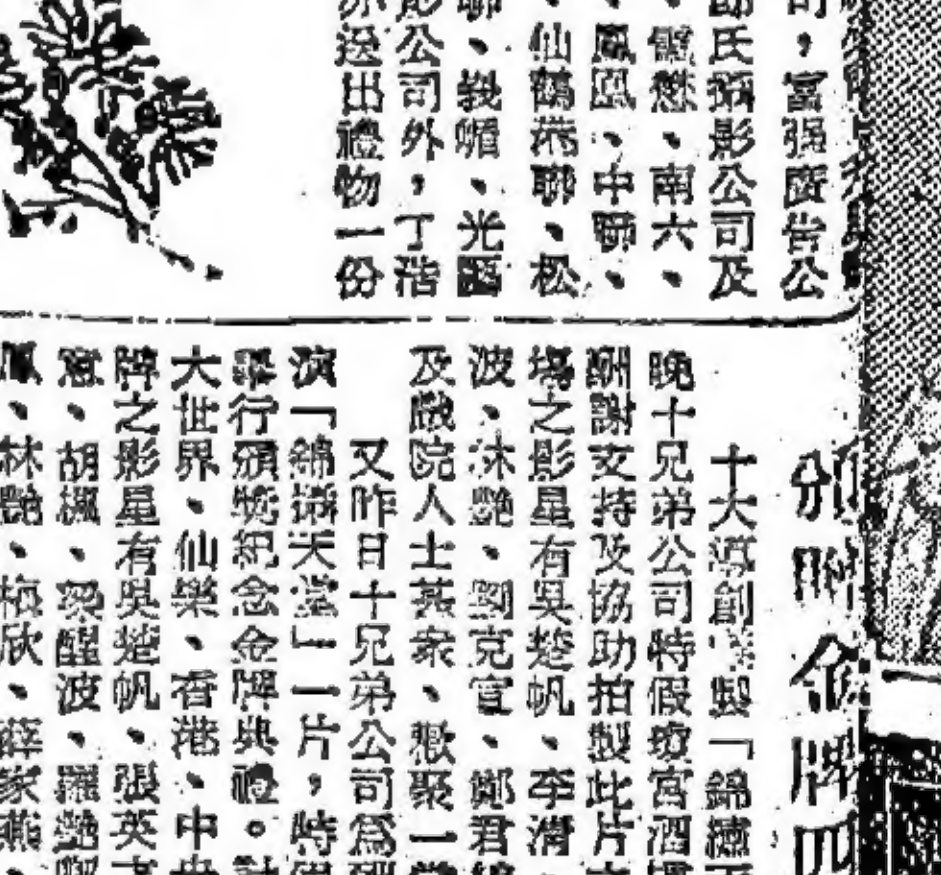 司，富强廣告公
邵氏攝影公司及
、懋、南六、
、鳳凰、中聯、
、仙鶴港聯、松
聯、嵋、光
影公司外，丁浩
亦送出禮物一份
頒贈金牌四
十大導創製「錦繡
晚十兄弟公司特假瓊宮酒
酬謝支持及協助拍製此片
場之影星有吳楚帆、李清、
波、林艷、劉克宣、鄭君綿
及戲院人士甚衆、歡聚一堂
又昨日十兄弟公司爲
演「錦繡天堂」一片，特
舉行頒獎紀念金牌典禮。
大世界、仙樂、香港、中央
牌之影星有吳楚帆、張英才
意、胡楓、梁醒波、羅艷卿
鳳、林艷、梅欣、薛家燕、